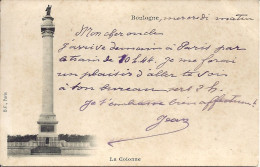 Boulogne, mercredi matin
Mon cher oncle
J'arrive demain à Paris par
le train de 10h44. Je me ferai
un plaisir d'aller te voir
à ton bureau vers 2 h.
Je t'embrasse bien affectueusement
Jean
La Colonne